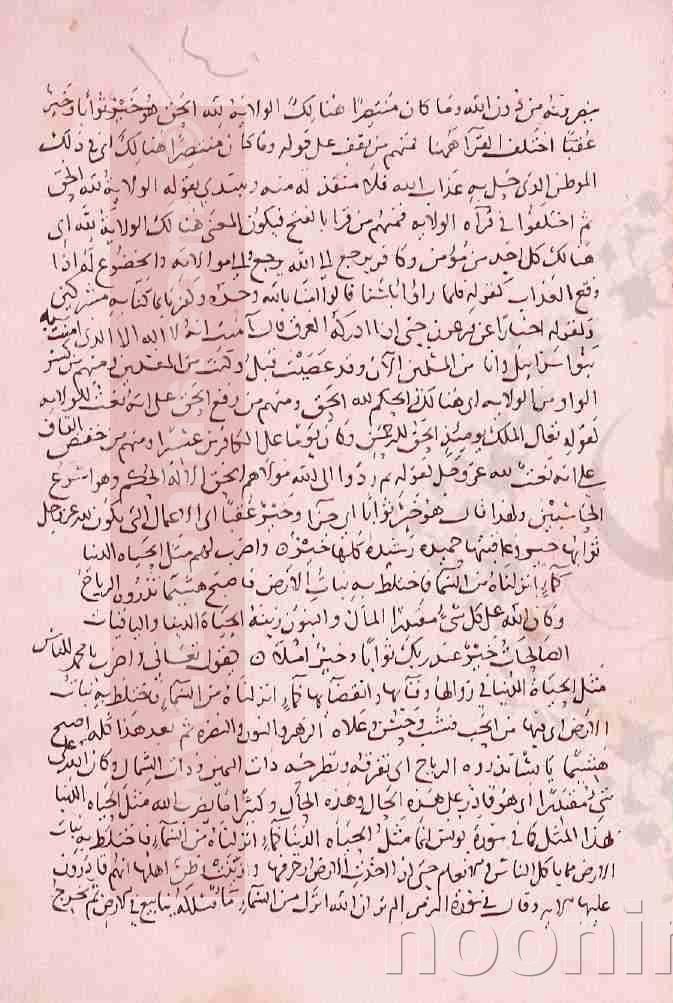 ينصرونه من دون الله وما كان منتصرا هنالك الولاية لله الحق هو خير ثوابا وخير
عقبا اختلف القراء ههنا فمنهم من يقف على قوله وما كان منتصرا هنالك اي في ذلك
الموطن الذي حل به عذاب الله فلا منقذ له منه ويبتدي بقوله الولاية لله الحق
ثم اختلفوا في قراة الولايه فمنهم من قرا بالفتح فيكون المعنى هنالك الولاية لله اي
هنالك كل احد من مؤمن وكافر يرجع الى الله ويرجع الى موالاته والخضوع له اذا
وقع العذاب كقوله فلما راوا باسنا قالوا امنا بالله وحده وكفرنا بما كنا به مشركين
وكقوله اخبارا عن فرعون حتى اذا ادركه الغرق قال آمنت انه لا اله الا الذي امنت به
بنوا سرايل وانا من المسلمين الآن وقد عصيت قبل وكنت من المفسدين ومنهم من كسر
الواو من الولايه اي هنالك الحكم لله الحق ومنهم من رفع الحق على انه نعت للولايه
كقوله تعالى الملك يومئذ الحق للرحمن وكان يوما على الكافرين عسيرا ومنهم من خفض القاف
على انه نعت لله عز وجل كقوله ثم ردوا الى الله مولاهم الحق الا له الحكم وهو اسرع
الحاسبين ولهذا قال هو خير ثوابا اي جزا وخير عقبا اي الاعمال التي يكون لله عز وجل
ثوابها خير وعاقبتها حميده رشيده كلها خير ○ واضرب لهم مثل الحياه الدنيا
كماء انزلناه من السما فاختلط به نبات الأرض فاصبح هشيما تذروه الرياح
وكان الله على كل شيء مقتدرا المال والبنون زينة الحياة الدنيا والباقيات
الصالحات خير عند ربك ثوابا وخير املا ○ يقول تعالى واضرب يا محمد للناس
مثل الحياة الدنيا في زوالها وفنائها وانقضائها كماء انزلناه من السماء فاختلط به نبات
الارض اي فيها من الحب فشب وحسن وعلاه الزهر والنور والنضره ثم بعد هذا كله اصبح
هشيما يابسا تذروه الرياح اي تفرقه وتطرحه ذات اليمين وذات الشمال وكان الله على كل
شي مقتدرا اي هو قادر على هذه الحال وهذه الحال وكثيرا ما يضرب الله مثل الحياه الدنيا
بهذا المثل كما في سورة يونس انما مثل الحياه الدنيا كماء انزلناه من السماء فاختلط به نبات
الارض مما ياكل الناس والانعام حتى اذا اخذت الارض زخرفها وازينت وظن اهلها انهم قادرون
عليها الايه وقال في سورة الزمر الم تر ان الله انزل من السماء ماء فسلكه ينابيع في الارض ثم يخرج